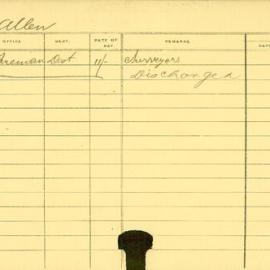 Allen
OFFICE DEPT. RATE OF PAY REMARKS DATE
ireman Dist 11/- Surveyors
Discharged